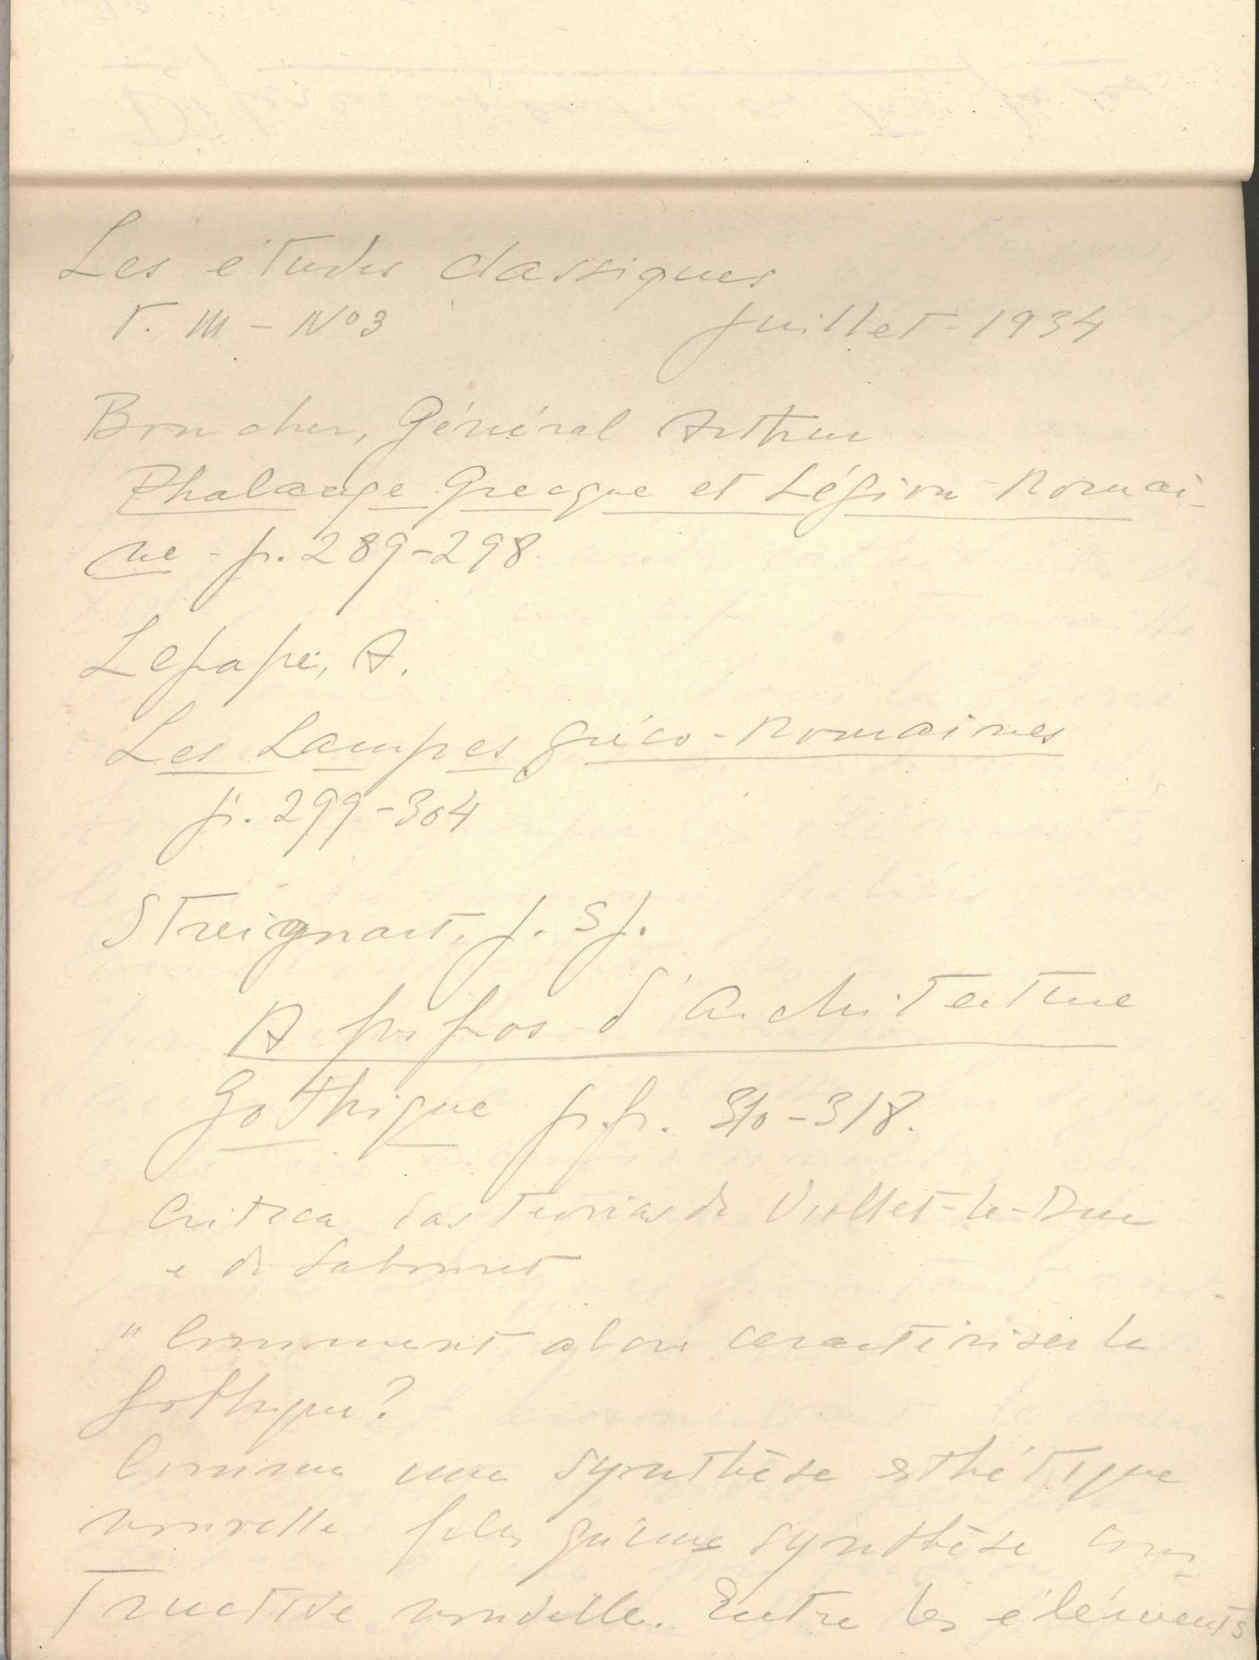 Les études classiques
T. III - Nº3 Juillet - 1934
Boucher, Général Arthur
Phalange Grecque et Légion Romai-
ne - p. 289-298
Lepape, A.
Les Lampes gréco-Romaines
p. 299-304
Streignart, J. S.J.
A propos d'Architecture
Gothique pp. 310-318.
Critica das teorias de Viollet-le-Duc
e de Sabouret
"Comment alors caractériser le
gothique?
Comme une synthèse esthétique
nouvelle plus qu'une synthèse cons-
tructive nouvelle. Entre les éléments